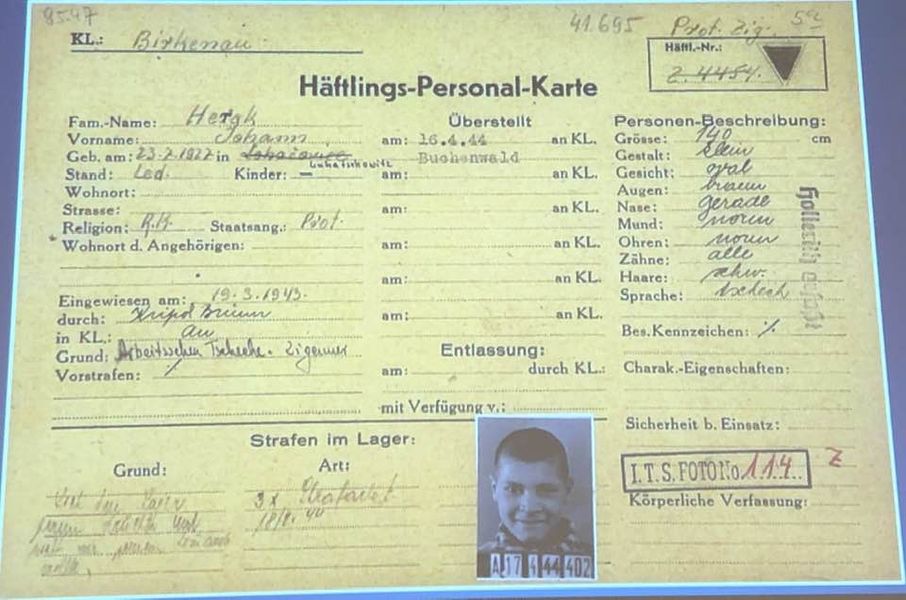 95.47
41.695
Prot. Zig. 52
KL.: Birkenau
Häftl.-Nr.:
Z. 4454.
Häftlings-Personal-Karte
Fam.-Name: Hergk
Vorname: Johann
Geb. am: 23-7-1927 in
Luhatschowitz
Stand: Led. Kinder: –
Wohnort:
Strasse:
Religion: R.K. Staatsang.: Prot.
* Wohnort d. Angehörigen:
Eingewiesen am: 19.3.1943.
durch: Kripol Brünn
in KL.: Au
Grund: Arbeitsscheu Tscheche. Zigeuner
Vorstrafen: ⁒
Überstellt
am: 16.4.44 an KL.
Buchenwald
am: an KL.
am: an KL.
am: an KL.
am: an KL.
am: an KL.
Entlassung:
am: durch KL.:
mit Verfügung v.:
Personen-Beschreibung:
Grösse: 140 cm
Gestalt: klein
Gesicht: oval
Augen: braun
Nase: gerade
Mund: norm
Ohren: norm
Zähne: alle
Haare: schw.
Sprache: tschech
Bes. Kennzeichen: ⁒
Charak.-Eigenschaften:
Sicherheit b. Einsatz:
I.T.S. FOTO No 114 Z
Körperliche Verfassung:
Hollerith erfaßt
Strafen im Lager:
Grund: Art:
3 x
A 17 4 44 402